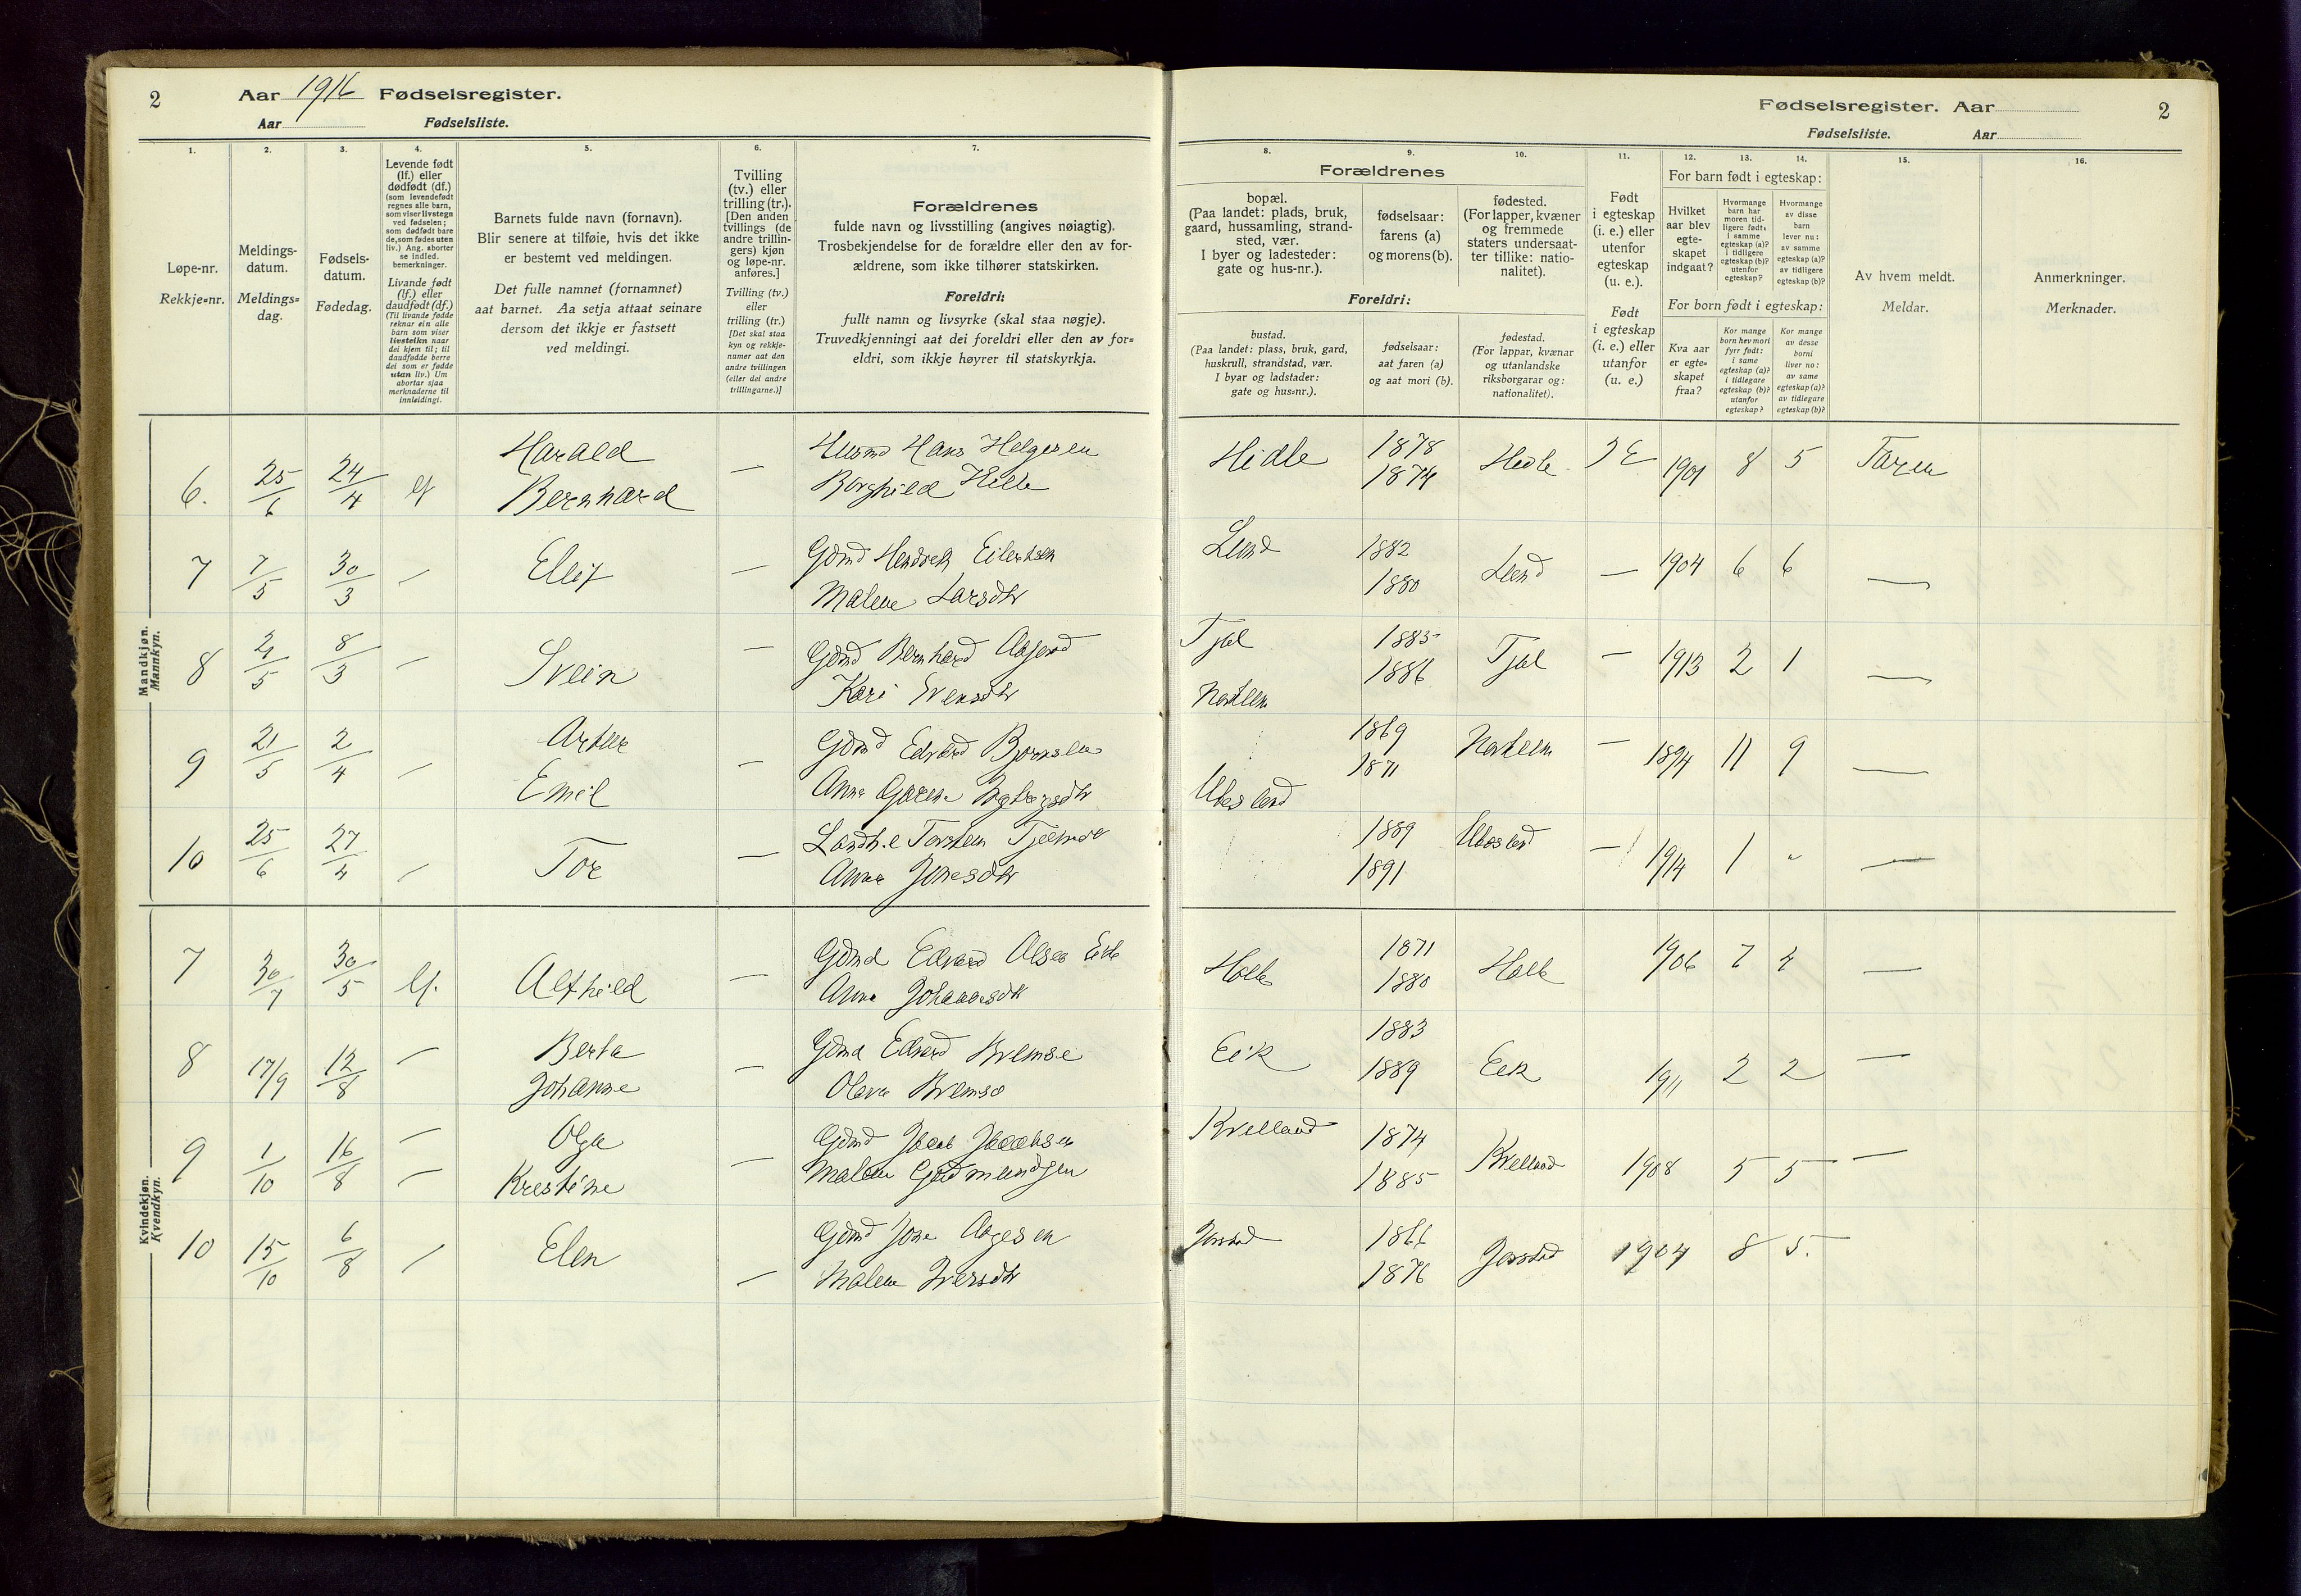 2
Aar 1916 Fødselsregister.
Aar Fødselsliste.
1.
2.
3.
4.
5.
6.
7.
Løpe-nr.
Rekkje-nr.
Meldings-
datum.
Meldings-
dag.
Fødsels-
datum.
Fødedag.
Levende født
(lf.) eller
dødfødt (df.)
(som levendefødt
regnes alle barn,
som viser livstegn
ved fødselen;
som dødfødt bare
de, som fødes uten
liv.) Ang. aborter
se indled.
bemerkninger.
Livande født
(lf.) eller
daudfødt (df.)
(Til livande fødde
reknar ein alle
born som viser
livsteikn naar
dei kjem til; til
daudfødde berre
dei som er fødde
utan liv.) Um
abortar sjaa
merknaderne til
innleidingi.
Barnets fulde navn (fornavn).
Blir senere at tilføie, hvis det ikke
er bestemt ved meldingen.
Det fulle namnet (fornamnet)
aat barnet. Aa setja attaat seinare
dersom det ikkje er fastsett
ved meldingi.
Tvilling
(tv.) eller
trilling (tr.).
[Den anden
tvillings (de
andre trillin-
gers) kjøn
og løpe-nr.
anføres.]
Tvilling (tv.)
eller
trilling (tr.)
[Det skal staa
kyn og rekkje-
numer aat den
andre tvillingen
(eller dei andre
trillingarne.)]
Forældrenes
fulde navn og livsstilling (angives nøiagtig).
Trosbekjendelse for de forældre eller den av for-
ældrene, som ikke tilhører statskirken.
Foreldri:
fullt namn og livsyrke (skal staa nøgje).
Truvedkjenningi aat dei foreldri eller den av for-
eldri, som ikkje høyrer til statskyrkja.
Mandkjøn.
Mannkyn.
6. 25/6 24/4 lf Harald — Husmd Hans Helgesen
Bernhard Borghild Hille
7 7/5 30/3 — — Gdmd Hendrek Eilertsen
Malene Larsdtr
8 21/5 8/3 — Svein — Gdmd Bernhard
Kari Svensdtr
9 21/5 2/4 — Artur — Gdmd Edvard
Emil Anna
10 25/6 27/4 — Tor — Torsten
Anna Jonesdtr
Kvindekjøn.
Kvendkyn.
7 30/7 30/5 lf. Alfhild — Gdmd Edvard Olsen Eik
Anna Johannesdtr
8 17/9 12/8 — Berta — Gdmd Edvard
Johanne Olava
9 1/10 16/8 — Olga — Gdmd Jacob Jacobsen
— Krestine Malene Gudmundsen
10 15/10 6/8 — Elen Gdmd Jone Aagesen
— Malene Iversdtr
Fødselsregister. Aar
2
Fødselsliste. Aar
8.
9.
10.
11.
12.
13.
14.
15.
16.
Forældrenes
bopæl.
(Paa landet: plads, bruk,
gaard, hussamling, strand-
sted, vær.
I byer og ladesteder:
gate og hus-nr.).
fødselsaar:
farens (a)
og morens (b).
fødested.
(For lapper, kvæner
og fremmede
staters undersaat-
ter tillike: natio-
nalitet).
Foreldri:
bustad.
(Paa landet: plass, bruk, gard,
huskrull, strandstad, vær.
I byar og ladstader:
gate og hus-nr.).
fødselsaar:
aat faren (a)
og aat mori (b).
fødestad.
(For lappar, kvænar
og utanlandske
riksborgarar og:
nationalitet).
Født
i egteskap
(i. e.) eller
utenfor
egteskap
(u. e.).
Født
i egteskap
(i. e.) eller
utanfor
(u. e.)
For barn født i egteskap:
Hvilket
aar blev
egte-
skapet
indgaat?
Hvormange
barn har
moren tid-
ligere født:
i samme
egteskap (a)?
i tidligere
egteskap (b)?
utenfor
egteskap?
Hvormange
av disse
barn
lever nu:
av samme
egteskap (a)?
av tidligere
egteskap (b)?
For born født i egteskap:
Kva aar
er egte-
skapet
fraa?
Kor mange
born hev mori
fyrr født:
i same
egteskap (a)?
i tidlegare
egteskap (b)?
utanfor
egteskap?
Kor mange
av desse
borni
liver no:
av same
egteskap (a)?
av tidlegare
egteskap (b)?
Av hvem meldt.
Meldar.
Anmerkninger.
Merknader.
Hidle 1878 Hidle I E 1901 8 5 Faren
1874
Lund 1882 Lund — 1904 6 6 —
1880
1883 — 1913 2 1 —
1886
1869 — 1894 11 9 —
1871
1889 — 1914 1 - —
1891
Holle 1871 Holle 1906 7 4 —
1880
Eik 1883 Eik 1911 2 2 —
1889
Kvelland 1874 Kvelland 1908 5 5 —
1885
Jorstad 1866 Jorstad 1904 8 5.
1876